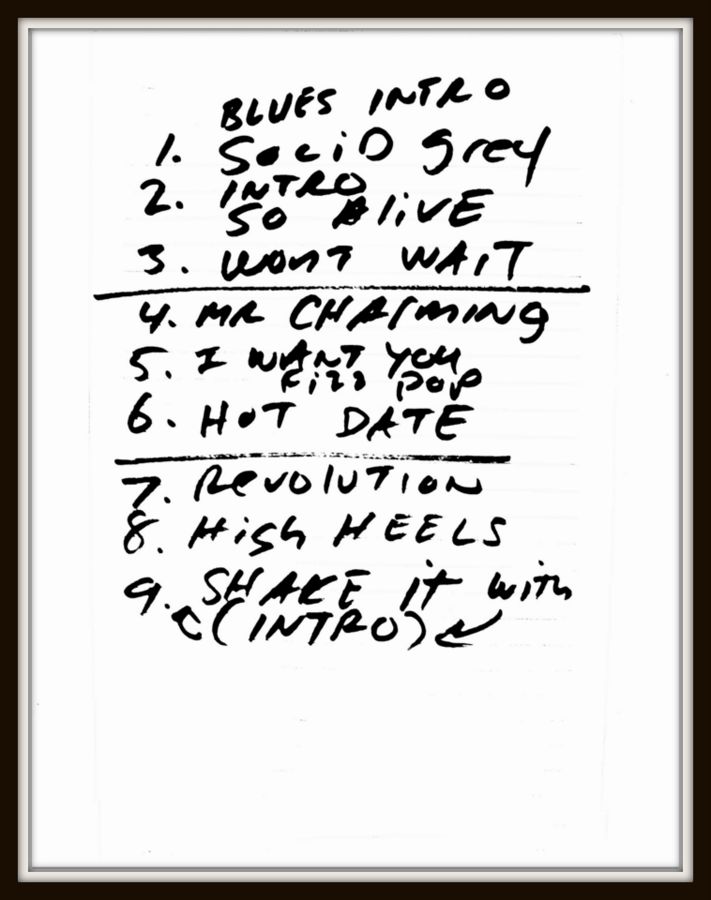 BLUES INTRO
1. SOLID Grey
2. INTRO
SO ALIVE
3. WONT WAIT
4. MR CHArMING
5. I WANT YOU
Fizz POP
6. HOT DATE
7. ReVOLUTION
8. High HEELS
9. SHAKE it with
(INTRO)